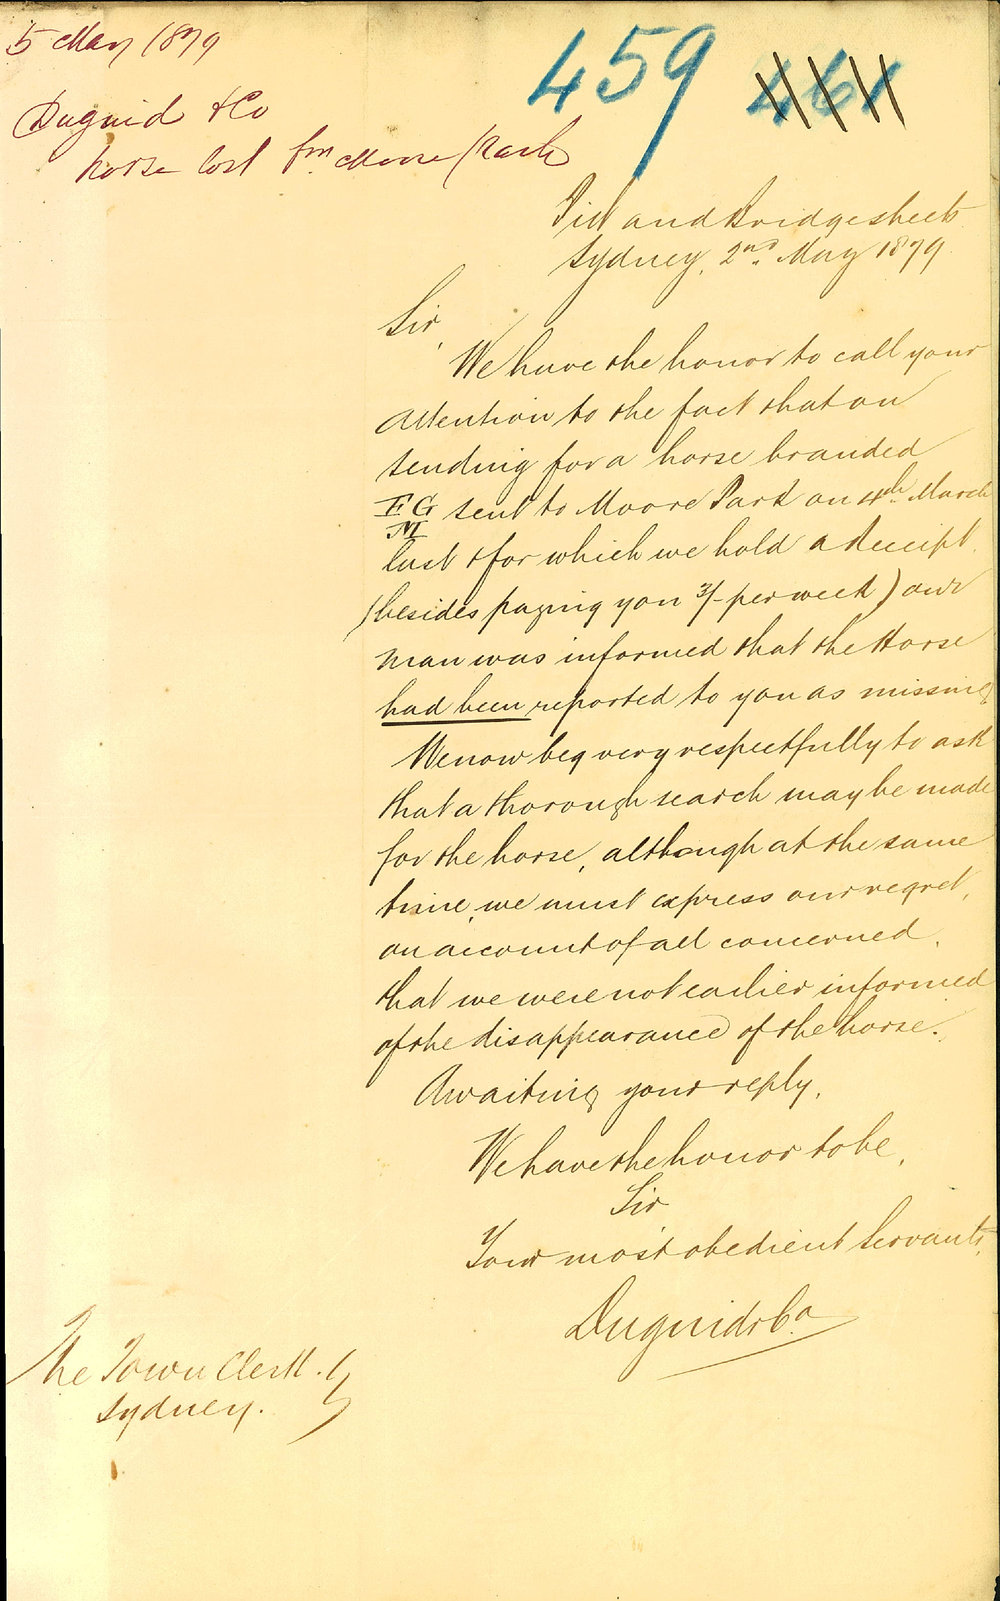 5 May 1879
459
461
Duguid & Co
horse lost fm Moore Park
Pitt and Bridge streets
Sydney, 2nd. May 1879
Sir,
We have the honor to call your
attention to the fact that on
sending for a horse branded
FG
M sent to Moore Park on 4th. March
last & for which we hold a Receipt,
(besides paying you 3/- per week) our
man was informed that the Horse
had been reported to you as missing
We now beg very respectfully to ask
that a thorough search may be made
for the horse, although at the same
time, we must express our regret,
on account of all concerned,
that we were not earlier informed
of the disappearance of the horse.
Awaiting your reply,
We have the honor to be,
Sir
Your most obedient Servants,
Duguid & Co.
The Town Clerk.
Sydney.